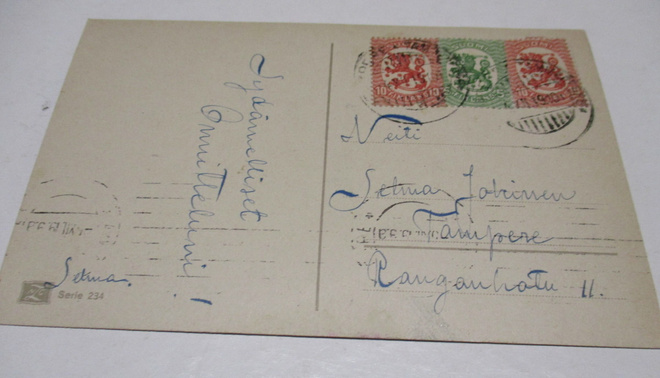 Sydämelliset
Onnitteluni!
Selma.
Serie 234
10 10
Neiti
Selma Jokinen
Tampere
Rongankatu 11.